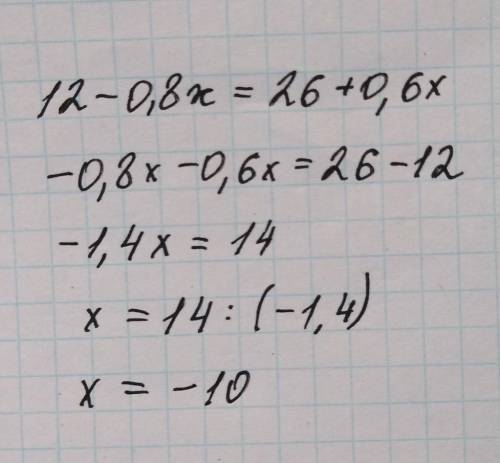 12 - 0,8x = 26 + 0,6x
-0,8x - 0,6x = 26 - 12
-1,4x = 14
x = 14 : (-1,4)
x = -10